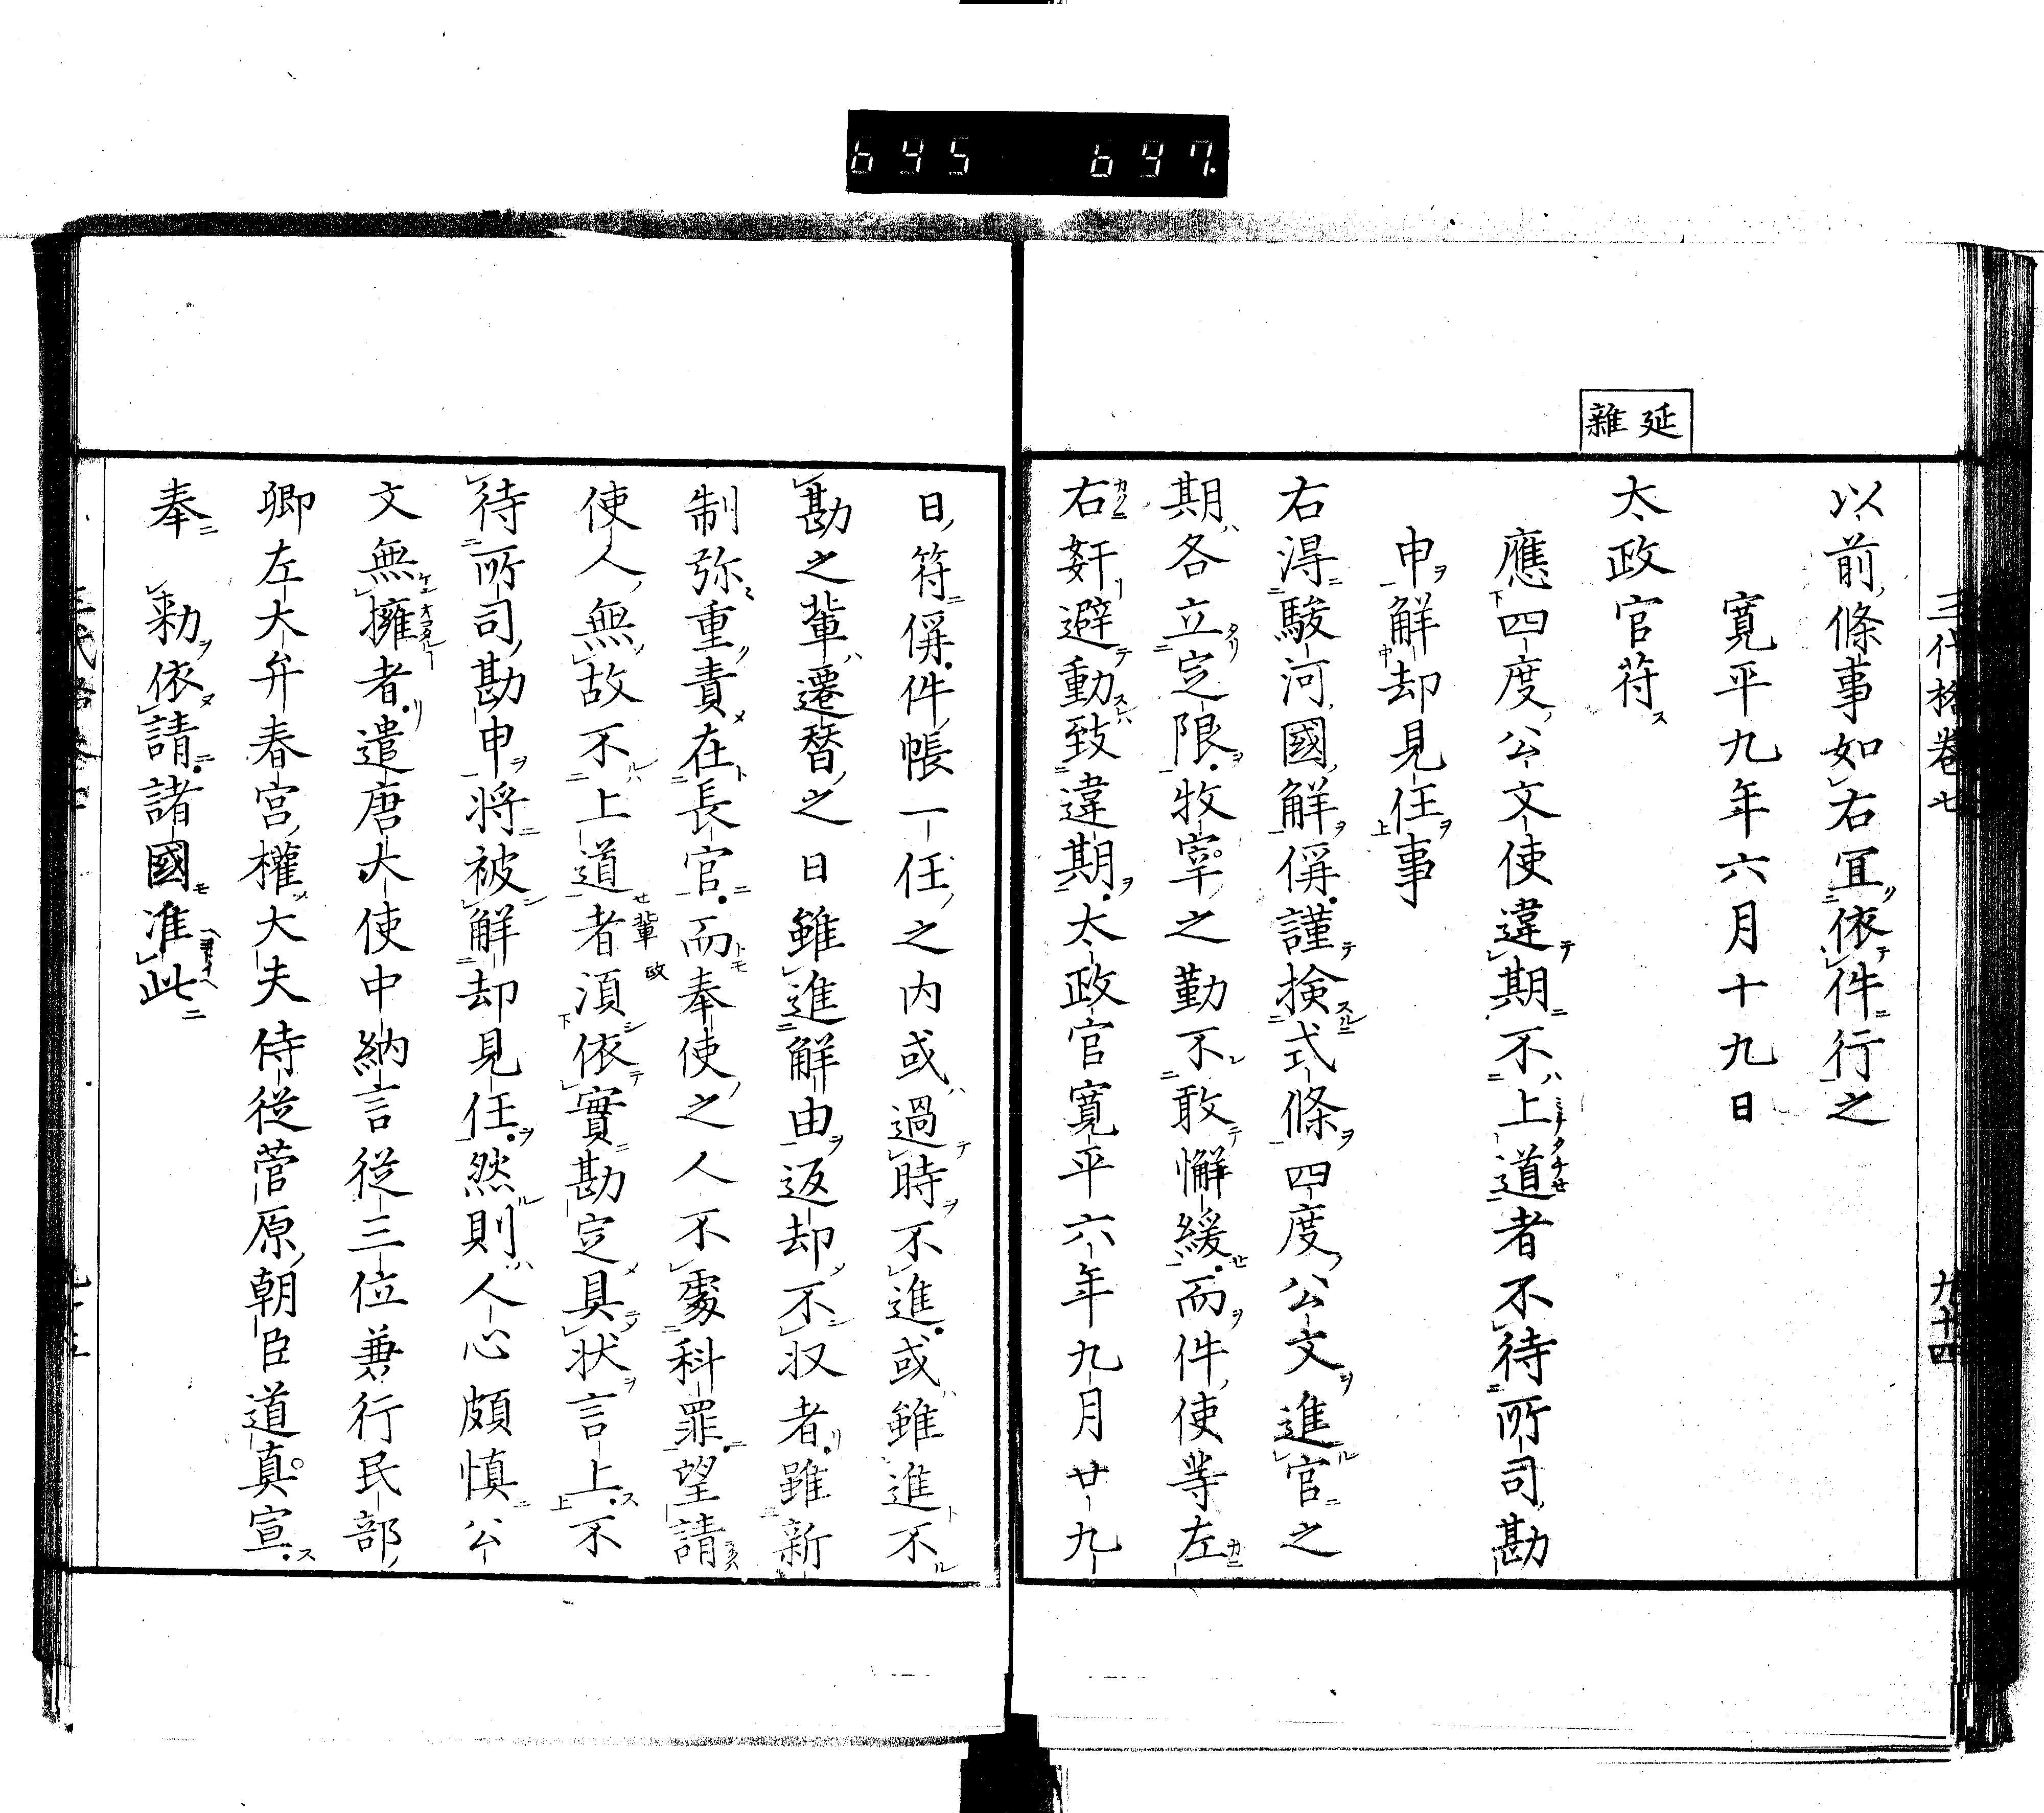 645 647.
三代格卷七 九十四
延雜
以前條事如右宜依件行之
寛平九年六月十九日
太政官符
應四度公文使違期不上道者不待所司勘
申解却見任事
右得駿河國解偁謹検式條四度公文進官之
期各立定限牧宰之勤不敢懈緩而件使等左
右奸避動致違期太政官寛平六年九月廿九
日符偁件帳一任之内或過時不進或雖進不
勘之輩遷替之日雖進解由返却不収者雖新
制弥重責在長官而奉使之人不處科罪望請
使人無故不上道者須依實勘定具状言上不
輩歟
待所司勘申将被解却見任然則人心頗慎公
文無擁者遣唐大使中納言従三位兼行民部
卿左大弁春宮權大夫侍従菅原朝臣道真宣
奉　勅依請諸國准此